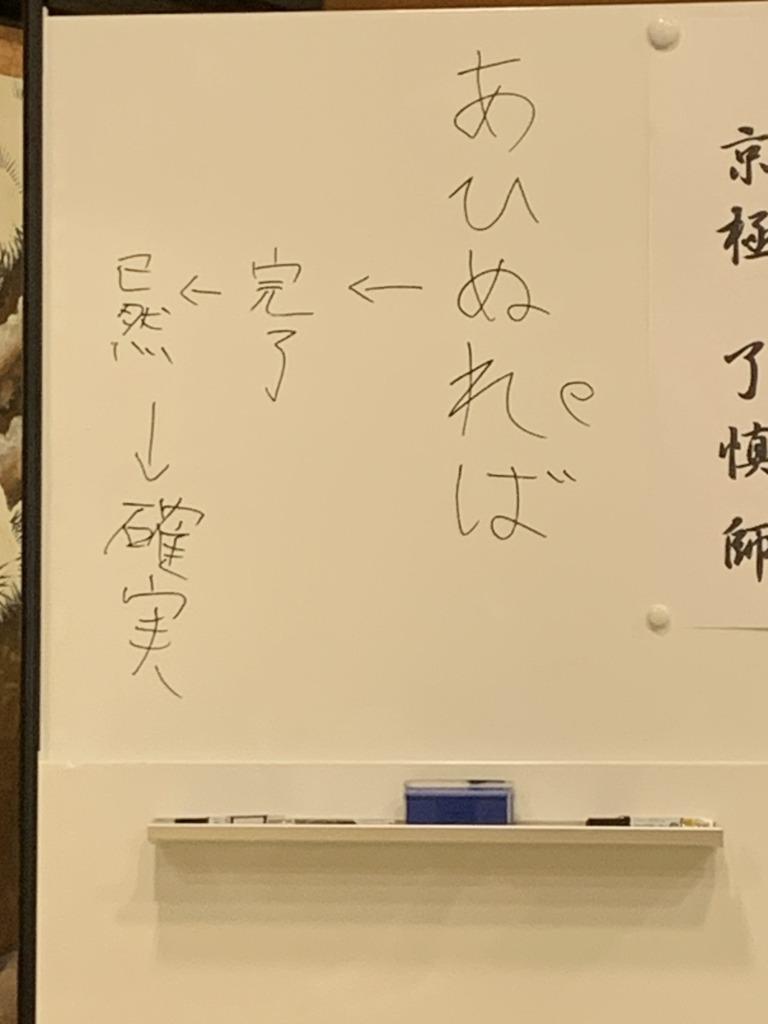 京極 了慎 師
あひぬれば
← 完了
← 已然 → 確実